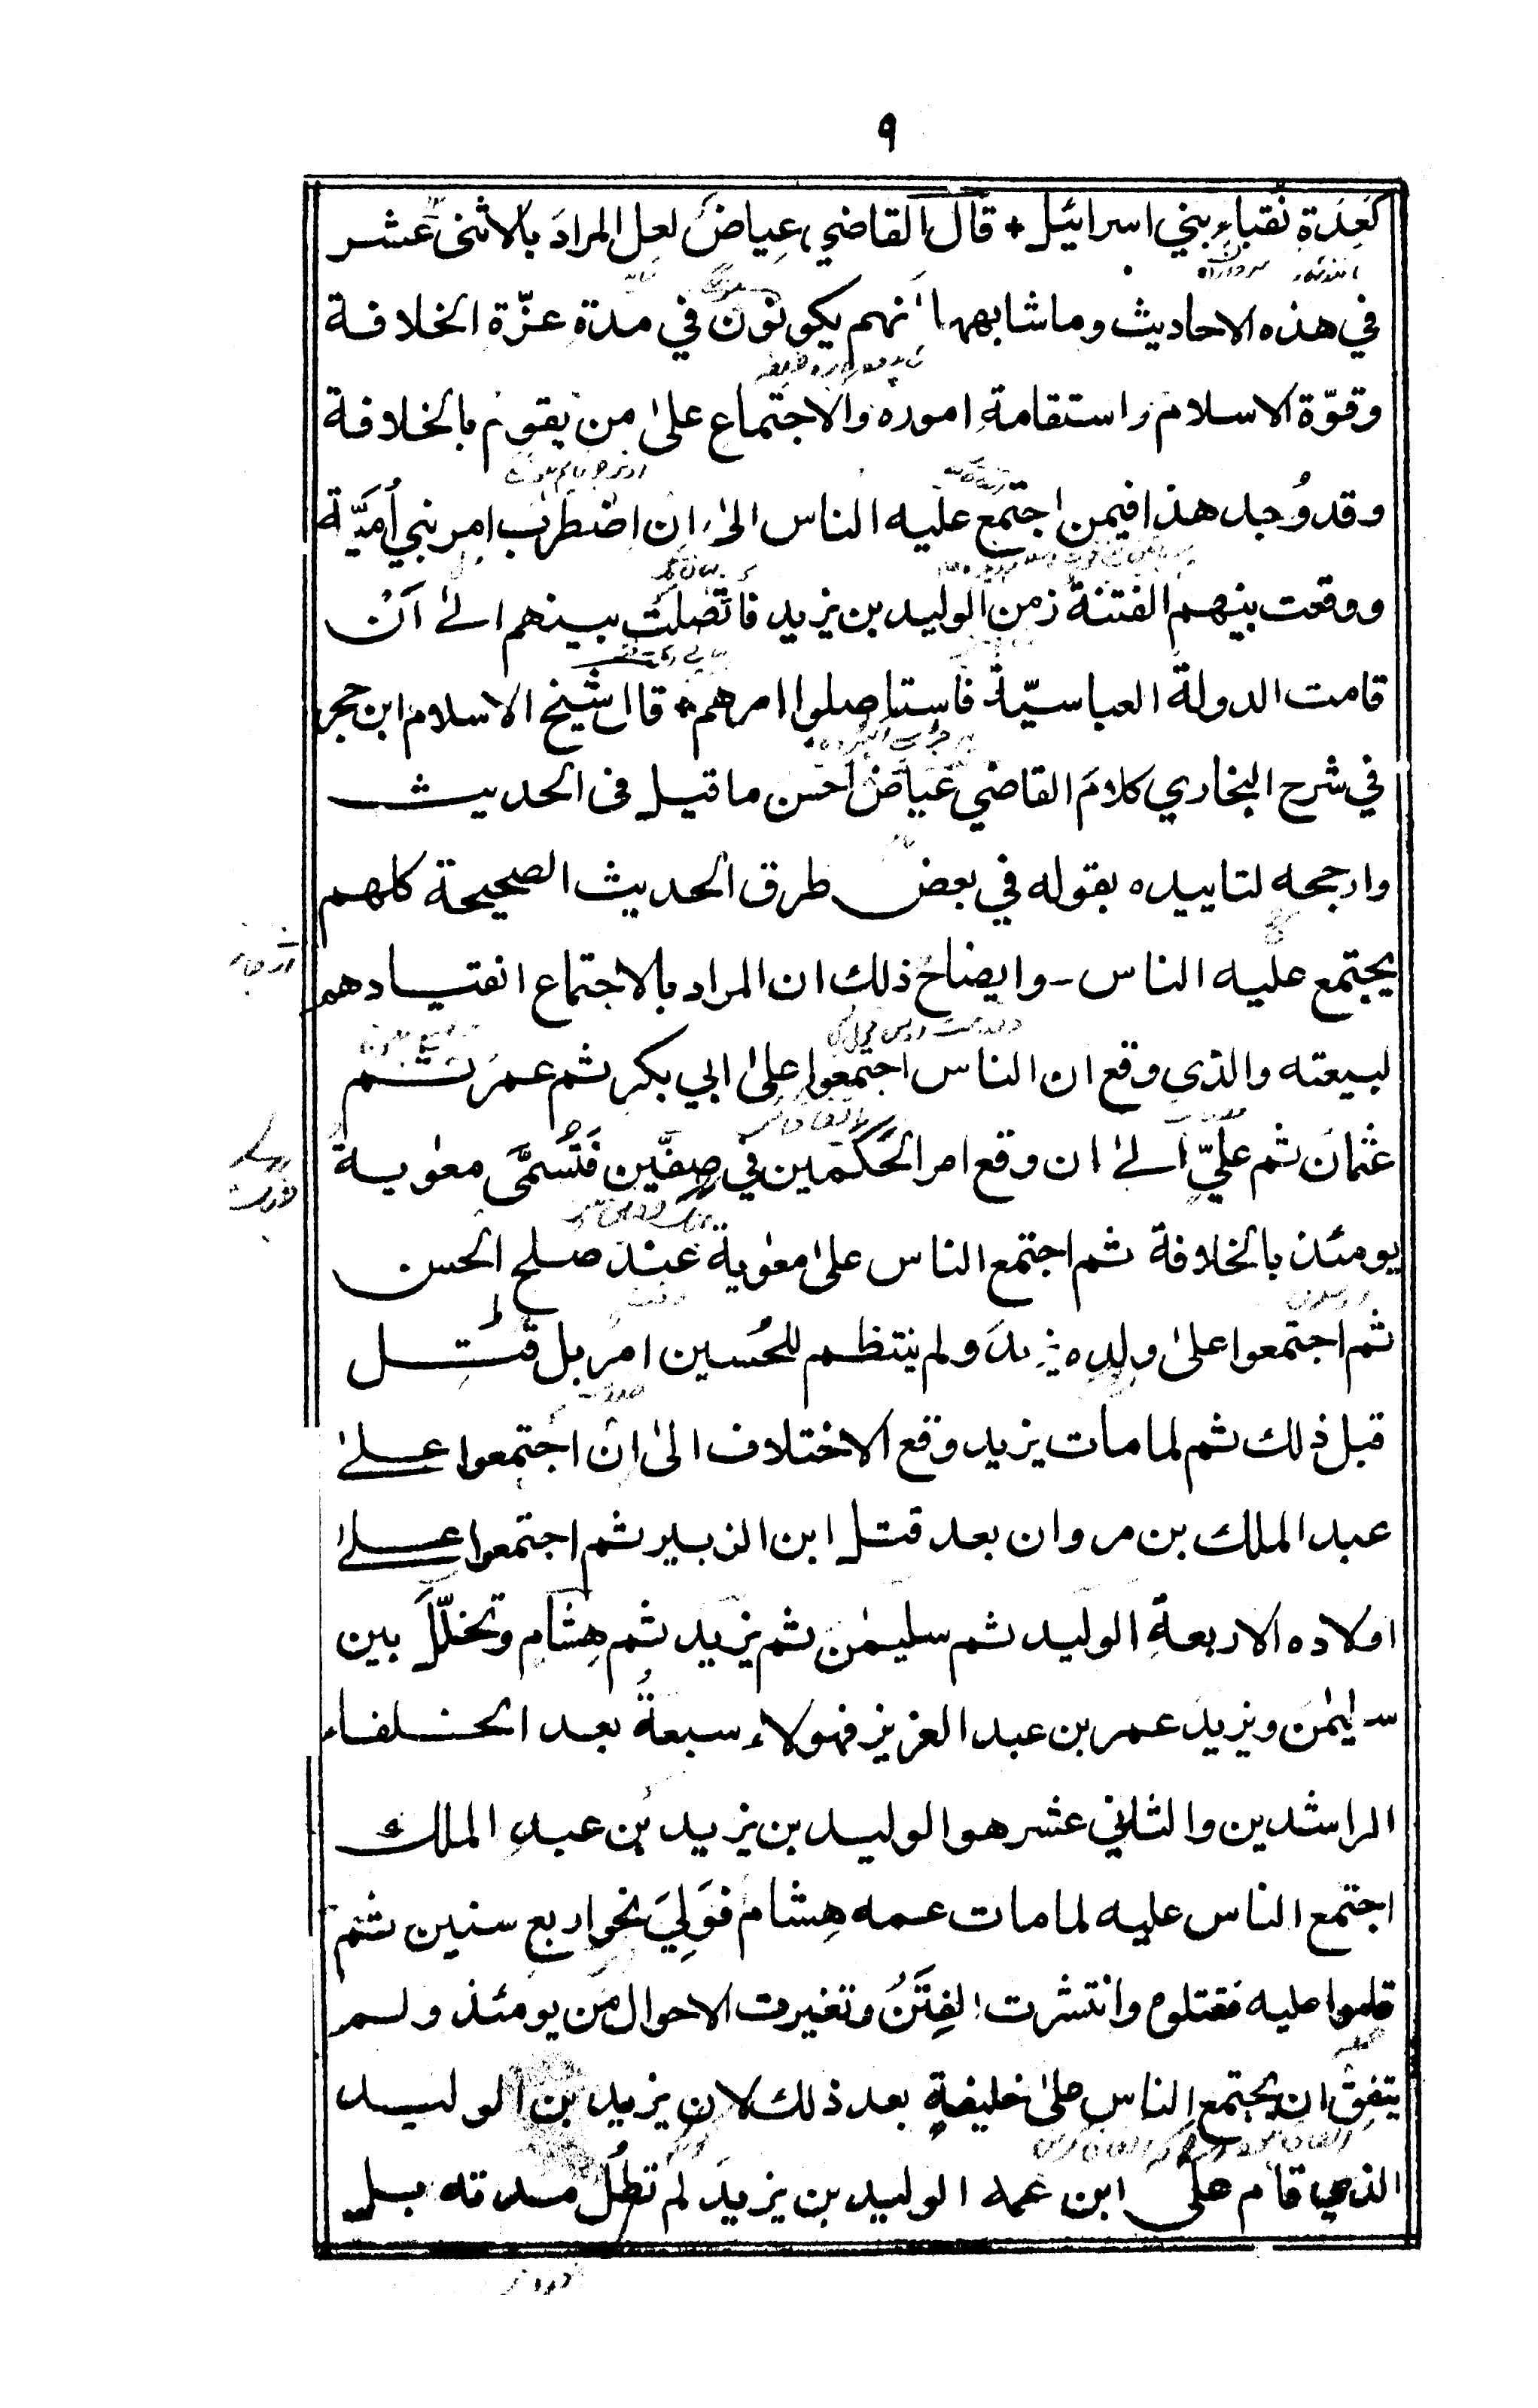 ٩
كَعِدَةِ نُقَباءِ بني اسرائيل * قال القاضي عِياض لعل المرادَ بالاثنى عشر
في هذه الاحاديث وما شابهها انهم يكونون في مدة عزّة الخلافة
وقوّة الاسلام واستقامةِ اموره والاجتماع على من يقوم بالخلافة
وقد وُجد هذا فيمن اجتمع عليه الناس الى ان اضطرب امر بني أُميّة
ووقعت بينهم الفتنة زمن الوليد بن يزيد فاتصلت بينهم الى اَنْ
قامت الدولة العباسيّة فاستاصلوا امرهم * قال شيخ الاسلام ابن حجر
في شرح البخاري كلامَ القاضي عياض احسن ما قيل فى الحديث
وارجحه لتاييده بقوله في بعض طرق الحديث الصحيحة كلهم
يجتمع عليه الناس - وايضاحُ ذلك ان المراد بالاجتماع انقيادهم
لبيعته والذي وقع ان الناس اجتمعوا على ابي بكر ثم عمرَ ثم
عثمانَ ثم عليّ الى ان وقع امر الحَكَمين في صِفّين فَتَسَمّى معٰوية
يومئذ بالخلافة ثم اجتمع الناس على معٰوية عند صلح الحسن
ثم اجتمعوا على ولده يزيدَ ولم ينتظم للحُسين امر بل قُتِل
قبل ذلك ثم لما مات يزيد وقع الاختلاف الى ان اجتمعوا على
عبد الملك بن مروان بعد قتل ابن الزبير ثم اجتمعوا على
اولاده الاربعةِ الوليد ثم سليمٰن ثم يزيد ثم هِشام وتخلّلَ بين
سليمٰن ويزيدَ عمر بن عبد العزيز فهولاء سبعةُ بعد الخلفاء
الراشدين والثاني عشر هو الوليد بن يزيد بن عبدِ الملك
اجتمع الناس عليه لما مات عمه هِشام فَوَلِيَ نحو اربع سنين ثم
قاموا عليه فقتلوه وانتشرت الفِتَنُ وتغيرت الاحوال من يومئذ ولم
يتفق ان يجتمع الناس على خليفةٍ بعد ذلك لان يزيد بن الوليد
الذي قام على ابن عمه الوليد بن يزيد لم تَطُلْ مدته بل